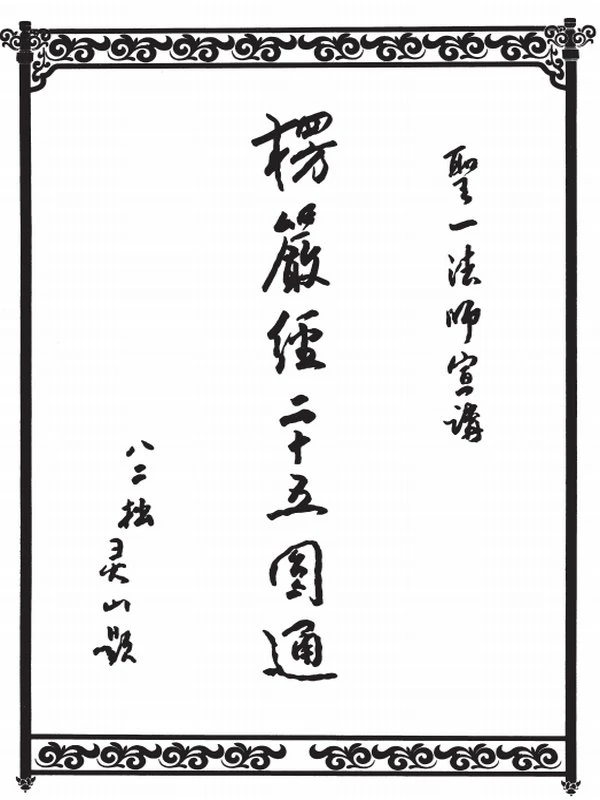 聖一法师宣講
楞嚴經二十五圓通
八二拙灵山題